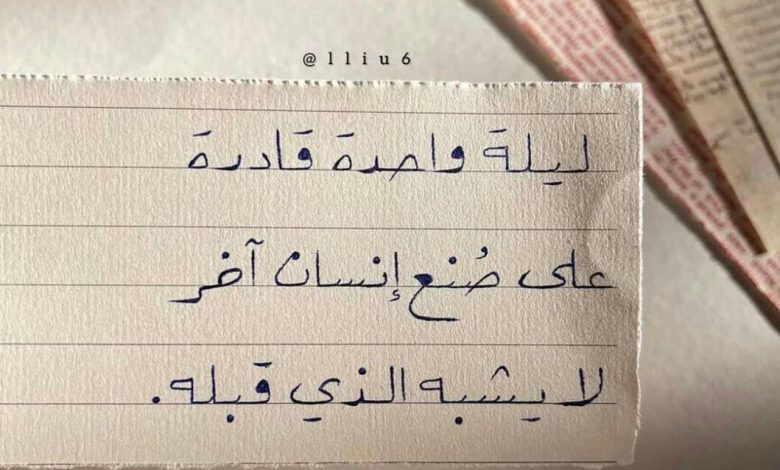 @lliu6
ليلة واحدة قادرة
على صُنع إنسان آخر
لا يشبه الذي قبله.